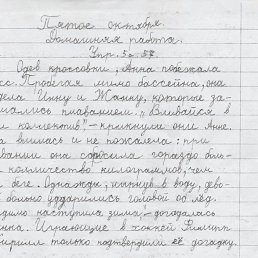 Пятое октября.
Домашняя работа.
Упр.
Одев кроссовки, Анна побежала
сс. Пробегая мимо бассейна, она
дела Инну и Жанну, которые за-
мались плаванием. "Вливайся в
коллектив" - крикнули они Анне.
а влилась и не пожалела: при
вании она сбросила гораздо боль-
количество килограммов, чем
беге. Однажды, нырнув в воду, дево-
больно ударились головой об лёд.
дило наступила зима, - догадалась
нна. Играющие в хоккей Филипп
ирилл только подтвердили её догадку.